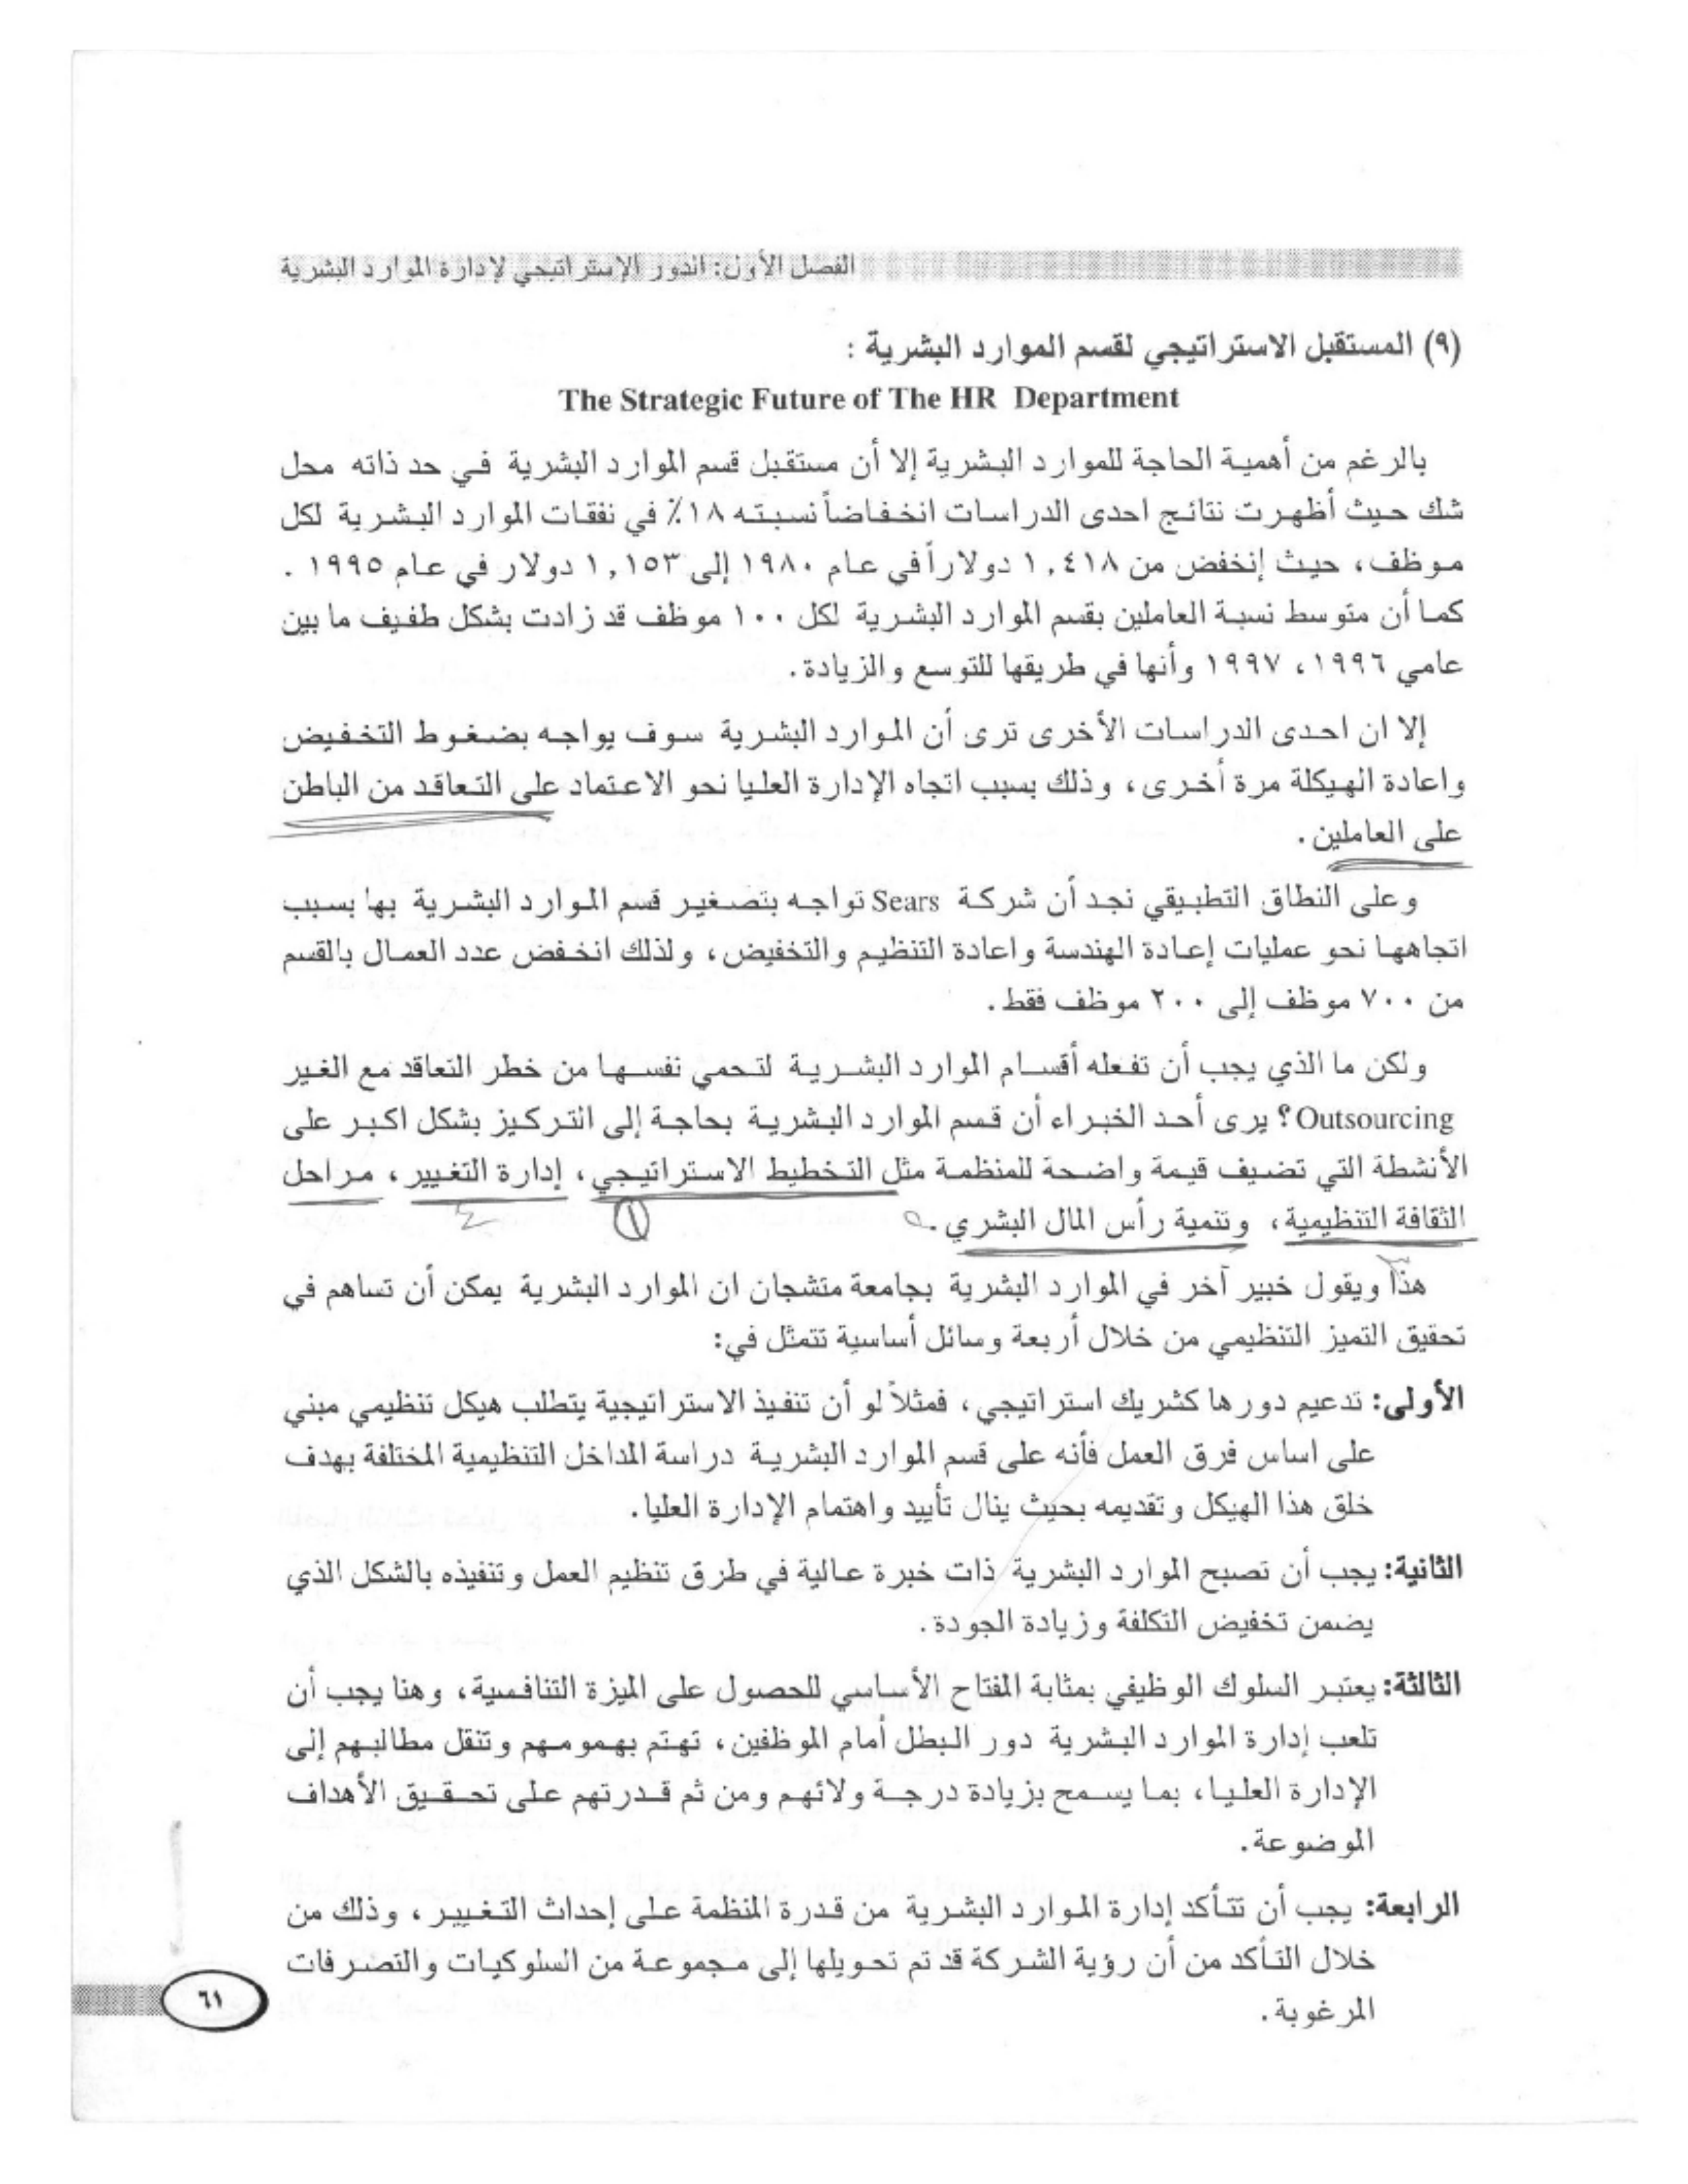 الفصل الأول: الدور الإستراتيجي لإدارة الموارد البشرية
(٩) المستقبل الاستراتيجي لقسم الموارد البشرية :
The Strategic Future of The HR Department
بالرغم من أهمية الحاجة للموارد البشرية إلا أن مستقبل قسم الموارد البشرية في حد ذاته محل
شك حيث أظهرت نتائج احدى الدراسات انخفاضاً نسبته ١٨٪ في نفقات الموارد البشرية لكل
موظف، حيث إنخفض من ١,٤١٨ دولاراً في عام ١٩٨٠ إلى ١,١٥٣ دولار في عام ١٩٩٥ .
كما أن متوسط نسبة العاملين بقسم الموارد البشرية لكل ١٠٠ موظف قد زادت بشكل طفيف ما بين
عامي ١٩٩٦، ١٩٩٧ وأنها في طريقها للتوسع والزيادة.
إلا ان احدى الدراسات الأخرى ترى أن الموارد البشرية سوف يواجه بضغوط التخفيض
واعادة الهيكلة مرة أخرى، وذلك بسبب اتجاه الإدارة العليا نحو الاعتماد على التعاقد من الباطن
على العاملين.
وعلى النطاق التطبيقي نجد أن شركة Sears تواجه بتصغير قسم الموارد البشرية بها بسبب
اتجاهها نحو عمليات إعادة الهندسة واعادة التنظيم والتخفيض، ولذلك انخفض عدد العمال بالقسم
من ٧٠٠ موظف إلى ٢٠٠ موظف فقط.
ولكن ما الذي يجب أن تفعله أقسام الموارد البشرية لتحمي نفسها من خطر التعاقد مع الغير
Outsourcing؟ يرى أحد الخبراء أن قسم الموارد البشرية بحاجة إلى التركيز بشكل اكبر على
الأنشطة التي تضيف قيمة واضحة للمنظمة مثل التخطيط الاستراتيجي، إدارة التغيير، مراحل
الثقافة التنظيمية، وتنمية رأس المال البشري.
هذا ويقول خبير آخر في الموارد البشرية بجامعة متشجان ان الموارد البشرية يمكن أن تساهم في
تحقيق التميز التنظيمي من خلال أربعة وسائل أساسية تتمثل في:
الأولى: تدعيم دورها كشريك استراتيجي، فمثلاً لو أن تنفيذ الاستراتيجية يتطلب هيكل تنظيمي مبني
على اساس فرق العمل فأنه على قسم الموارد البشرية دراسة المداخل التنظيمية المختلفة بهدف
خلق هذا الهيكل وتقديمه بحيث ينال تأييد واهتمام الإدارة العليا.
الثانية: يجب أن تصبح الموارد البشرية ذات خبرة عالية في طرق تنظيم العمل وتنفيذه بالشكل الذي
يضمن تخفيض التكلفة وزيادة الجودة.
الثالثة: يعتبر السلوك الوظيفي بمثابة المفتاح الأساسي للحصول على الميزة التنافسية، وهنا يجب أن
تلعب إدارة الموارد البشرية دور البطل أمام الموظفين، تهتم بهمومهم وتنقل مطالبهم إلى
الإدارة العليا، بما يسمح بزيادة درجة ولائهم ومن ثم قدرتهم على تحقيق الأهداف
الموضوعة.
الرابعة: يجب أن تتأكد إدارة الموارد البشرية من قدرة المنظمة على إحداث التغيير، وذلك من
خلال التأكد من أن رؤية الشركة قد تم تحويلها إلى مجموعة من السلوكيات والتصرفات
المرغوبة.
٦١